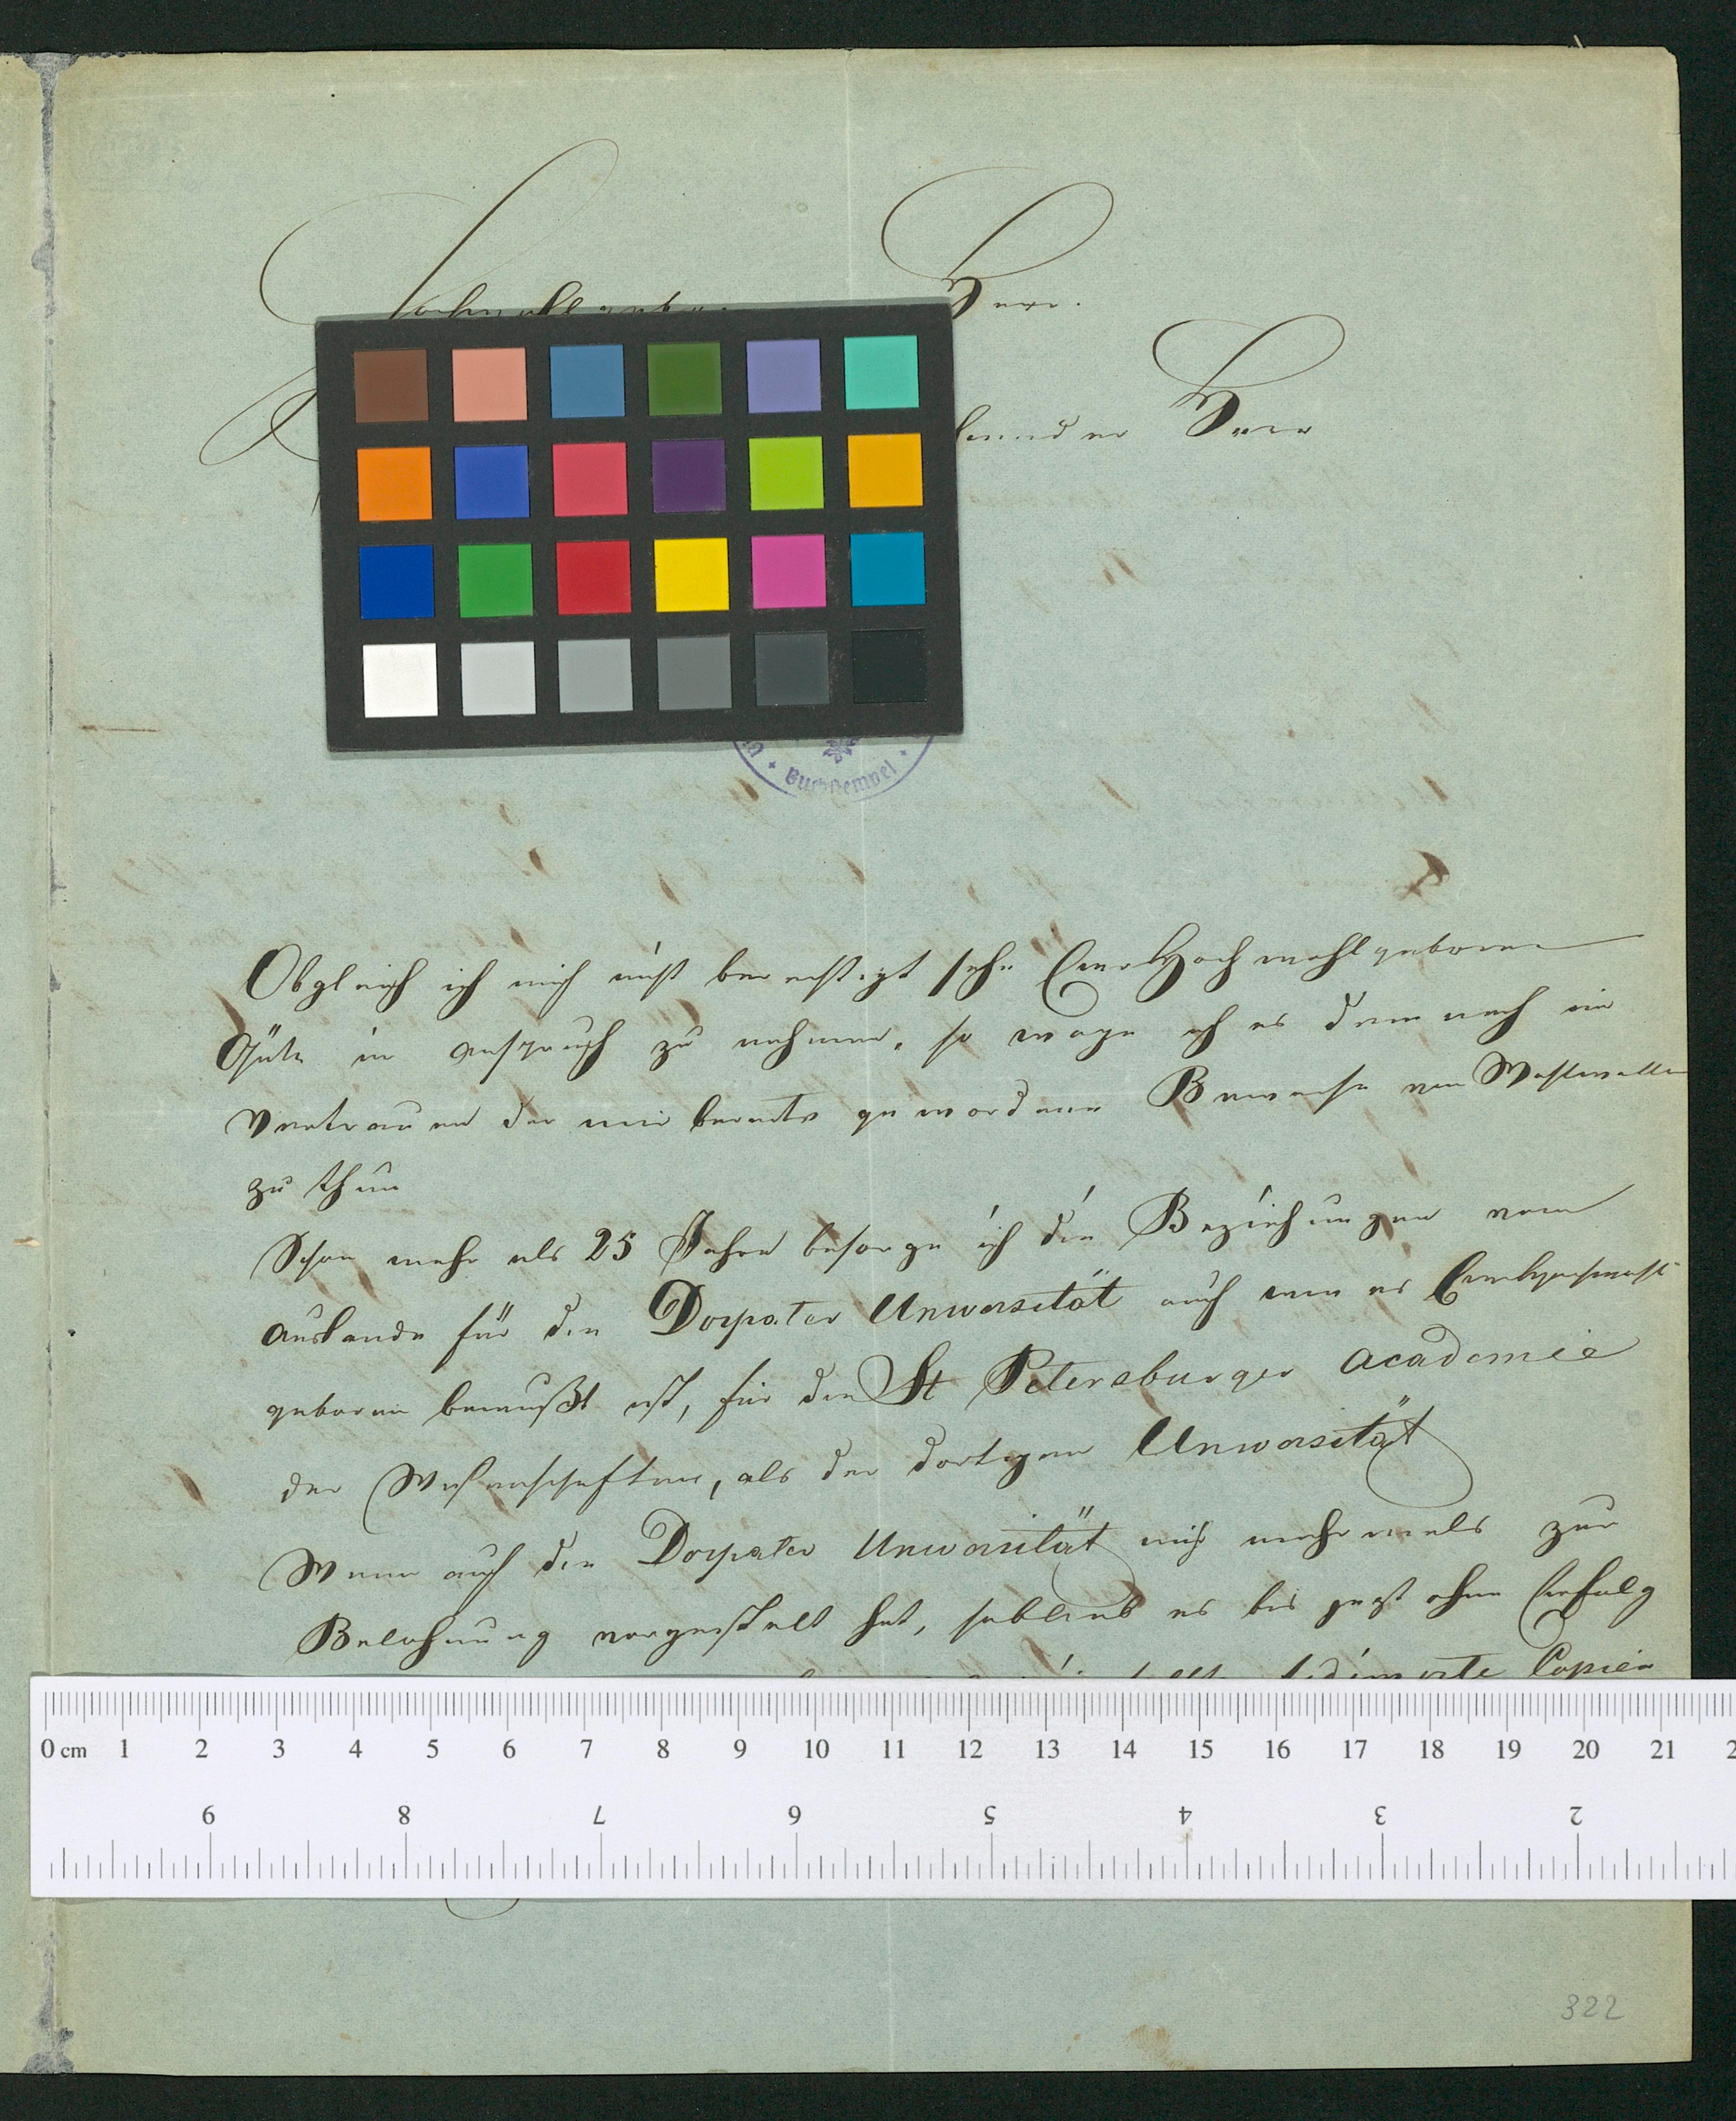 Hochwohlgeborner Herr.
Herr
Buchstempel
Obgleich ich mich nicht berechtigt sehe Euer Hochwohlgeboren
Güte in Anspruch zu nehmen, so wage ich es dennoch im
Vertrauen der mir bereits gewordenen Beweise von Wohlwollen
zu thun
Schon mehr als 25 Jahre besorge ich die Beziehungen vom
Auslande für die Dorpater Universität auch wie es Euer Hochwohl-
geboren bewußt ist, für die St Petersburger Academie
der Wissenschaften, als der dortigen Universität
Wenn auch die Dorpater Universität mich mehrmals zur
Belohnung vorgestellt hat, so blieb es bis jezt ohne Erfolg
vidimirte Copien
0 cm 1 2 3 4 5 6 7 8 9 10 11 12 13 14 15 16 17 18 19 20 21
9 8 7 6 5 4 3 2
322